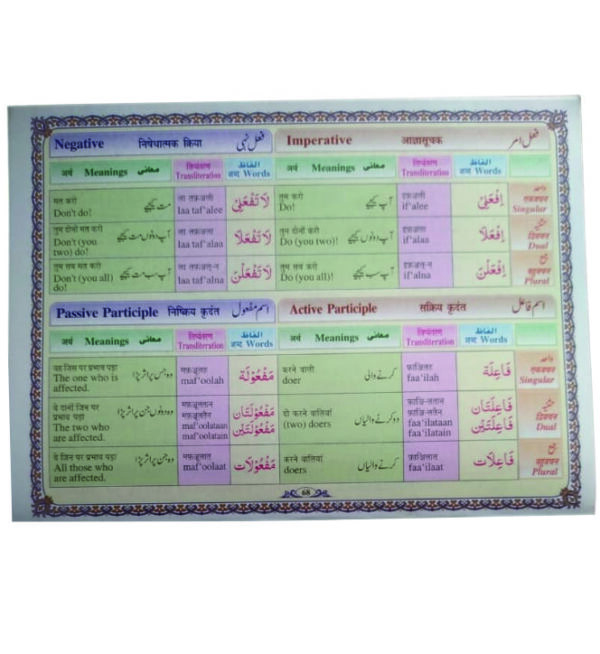 Negative निषेधात्मक क्रिया فعل نہی Imperative आज्ञासूचक فعل امر
अर्थ Meanings معانی लिप्यंतरण Transliteration الفاظ शब्द Words अर्थ Meanings معانی लिप्यंतरण Transliteration الفاظ शब्द Words
मत करो Don't do! مت کیجیے laa taf'alee لَا تَفْعَلِيْ तुम करो Do! آپ کیجیے if'alee اِفْعَلِيْ واحد एकवचन Singular
तुम दोनों मत करो Don't (you two) do! آپ دونوں مت کیجیے laa taf'alaa لَا تَفْعَلَا तुम दोनों करो Do (you two)! آپ دونوں کیجیے if'alaa اِفْعَلَا द्विवचन Dual
तुम सब मत करो Don't (you all) do! آپ سب مت کیجیے laa taf'alna لَا تَفْعَلْنَ तुम सब करो Do (you all)! آپ سب کیجیے if'alna اِفْعَلْنَ جمع बहुवचन Plural
Passive Participle निष्क्रिय कृदंत اسم مفعول Active Participle सक्रिय कृदंत اسم فاعل
अर्थ Meanings معانی लिप्यंतरण Transliteration الفاظ शब्द Words अर्थ Meanings معانی लिप्यंतरण Transliteration الفاظ शब्द Words
वह जिस पर प्रभाव पड़ा The one who is affected. وہ جس پر اثر پڑا maf'oolah مَفْعُوْلَة करने वाली doer کرنے والی faa'ilah فَاعِلَة واحد एकवचन Singular
वे दोनों जिन पर प्रभाव पड़ा The two who are affected. وہ دونوں جن پر اثر پڑا maf'oolataan maf'oolatain مَفْعُوْلَتَان مَفْعُوْلَتَيْن दो करने वालियां (two) doers دو کرنے والیاں faa'ilataan faa'ilatain فَاعِلَتَان فَاعِلَتَيْن द्विवचन Dual
वे जिन पर प्रभाव पड़ा All those who are affected. وہ جن پر اثر پڑا maf'oolaat مَفْعُوْلَات करने वालियां doers کرنے والیاں faa'ilaat فَاعِلَات جمع बहुवचन Plural
68